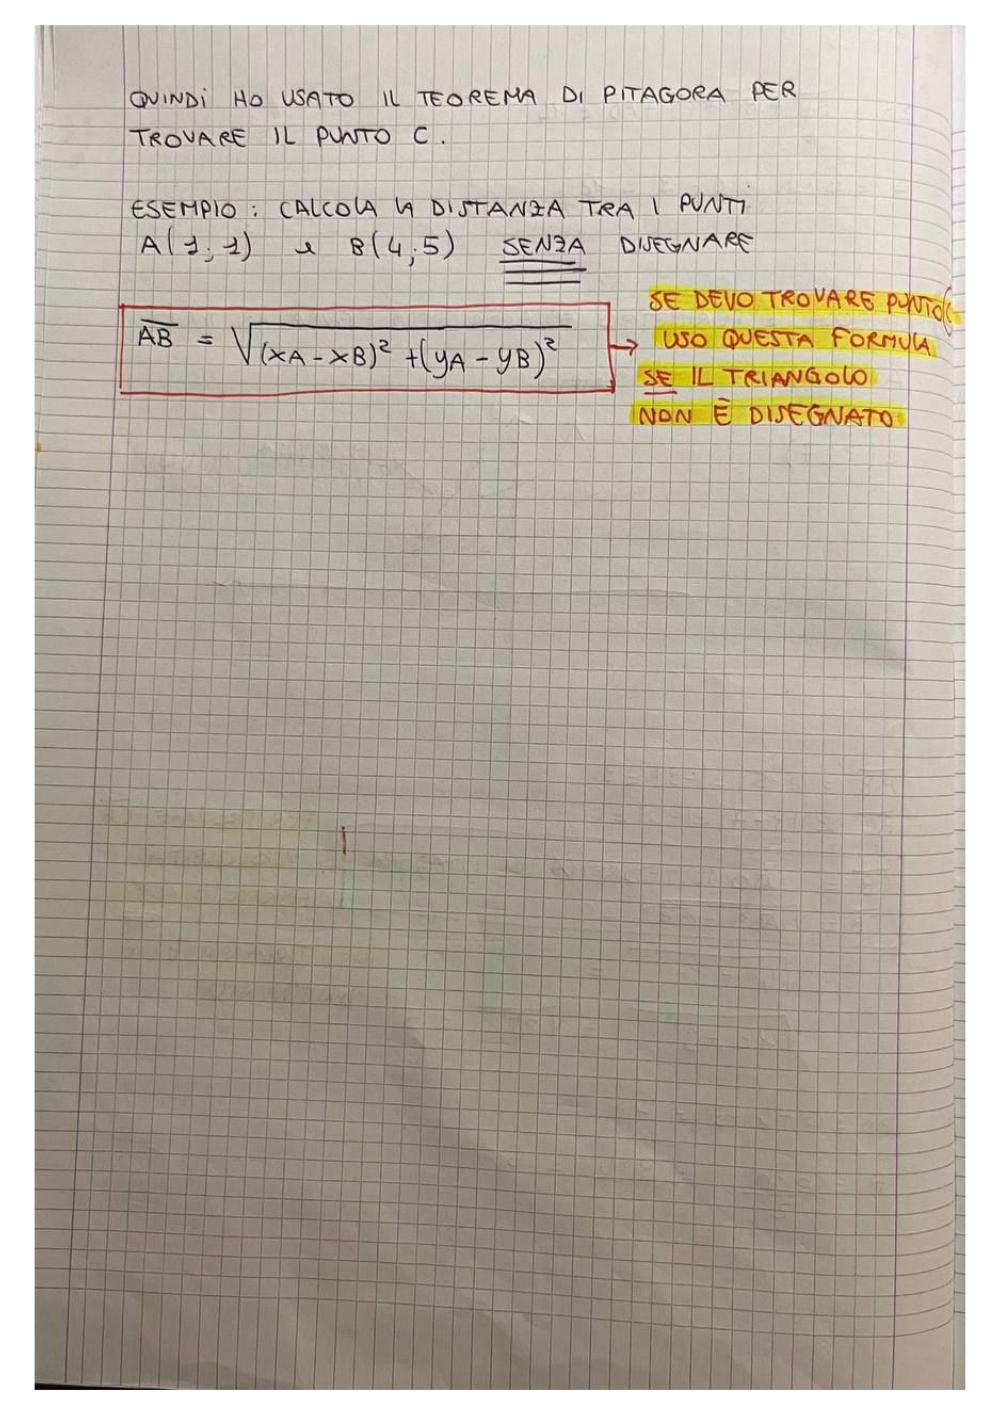 QUINDI HO USATO IL TEOREMA DI PITAGORA PER
TROVARE IL PUNTO C.
ESEMPIO: CALCOLA LA DISTANZA TRA I PUNTI
A(1;1) e B(4;5) SENZA DISEGNARE
AB = √(xA - xB)² + (yA - yB)²
SE DEVO TROVARE PUNTO C
USO QUESTA FORMULA
SE IL TRIANGOLO
NON È DISEGNATO